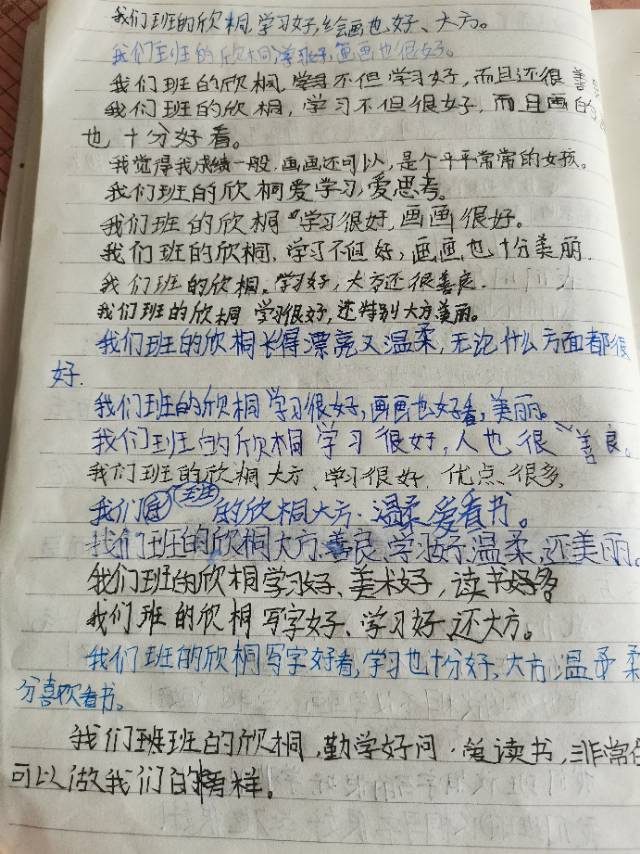 我们班的欣桐,学习好,绘画也好、大方。
我们班的欣桐学习好,画画也很好。
我们班的欣桐,学习不但学习好,而且还很善
我们班的欣桐,学习不但很好,而且画的
也十分好看。
我觉得我成绩一般,画画还可以,是个平平常常的女孩。
我们班的欣桐爱学习,爱思考。
我们班的欣桐学习很好,画画很好。
我们班的欣桐,学习不但好,画画也十分美丽.
我们班的欣桐,学习好,大方还很善良.
我们班的欣桐 学习很好,还特别大方美丽。
我们班的欣桐长得漂亮又温柔,无论什么方面都很
好.
我们班的欣桐学习很好,画画也好看,美丽。
我们班的欣桐学习很好,人也很善良。
我们班的欣桐大方、学习很好,优点很多,
我们班的欣桐大方.温柔爱看书。
我们班的欣桐大方.善良,学习好,温柔,还美丽。
我们班的欣桐学习好、美术好,读书多
我们班的欣桐写字好、学习好,还大方。
我们班的欣桐写字好看,学习也十分好,大方,温柔
分喜欢看书。
我们班班的欣桐,勤学好问.爱读书,非常
可以做我们的榜样。